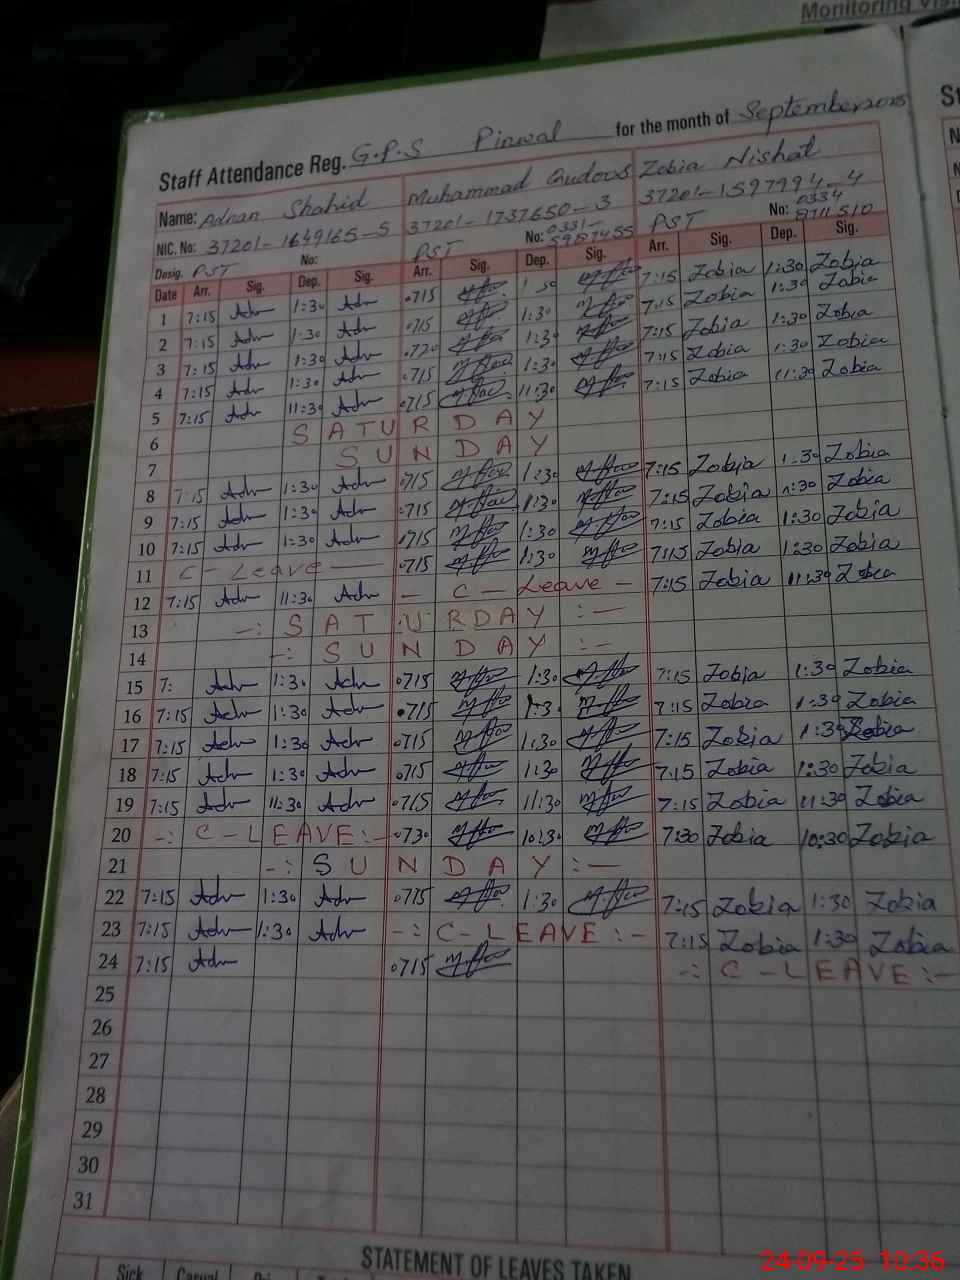 Monitoring
Staff Attendance Reg. G.P.S Pinwal for the month of September 2025
Name: Adnan Shahid Muhammad Qudoos Zobia Nishat
NIC. No: 37201-1649165-5 37201-1737650-3 37201-1597994-4
Desig. PST No: PST No: 0331-5987455 PST No: 0334 8711510
Date Arr. Sig. Dep. Sig. Arr. Sig. Dep. Sig. Arr. Sig. Dep. Sig.
1 7:15 Adn 1:30 Adn 0715 1:30 7:15 Zobia 1:30 Zobia
2 7:15 Adn 1:30 Adn 0715 1:30 7:15 Zobia 1:30 Zobia
3 7:15 Adn 1:30 Adn 0720 1:30 7:15 Zobia 1:30 Zobia
4 7:15 Adn 1:30 Adn 0715 1:30 7:15 Zobia 1:30 Zobia
5 7:15 Adn 11:30 Adn 0715 11:30 7:15 Zobia 11:30 Zobia
6 SATURDAY
7 SUNDAY
8 7:15 Adn 1:30 Adn 0715 1:30 7:15 Zobia 1:30 Zobia
9 7:15 Adn 1:30 Adn 0715 1:30 7:15 Zobia 1:30 Zobia
10 7:15 Adn 1:30 Adn 0715 1:30 7:15 Zobia 1:30 Zobia
11 C-Leave 0715 1:30 7:15 Zobia 1:30 Zobia
12 7:15 Adn 11:30 Adn - C - Leave - 7:15 Zobia 11:30 Zobia
13 -: SATURDAY :-
14 -: SUNDAY :-
15 7: Adn 1:30 Adn 0715 1:30 7:15 Zobia 1:30 Zobia
16 7:15 Adn 1:30 Adn 0715 1:30 7:15 Zobia 1:30 Zobia
17 7:15 Adn 1:30 Adn 0715 1:30 7:15 Zobia 1:30 Zobia
18 7:15 Adn 1:30 Adn 0715 1:30 7:15 Zobia 1:30 Zobia
19 7:15 Adn 11:30 Adn 0715 11:30 7:15 Zobia 11:30 Zobia
20 -: C-LEAVE :- 0730 10:30 7:30 Zobia 10:30 Zobia
21 -: SUNDAY :-
22 7:15 Adn 1:30 Adn 0715 1:30 7:15 Zobia 1:30 Zobia
23 7:15 Adn 1:30 Adn -: C-LEAVE :- 7:15 Zobia 1:30 Zobia
24 7:15 Adn 0715 -: C-LEAVE :-
25
26
27
28
29
30
31
STATEMENT OF LEAVES TAKEN
Sick Casual
24-09-25 10:36